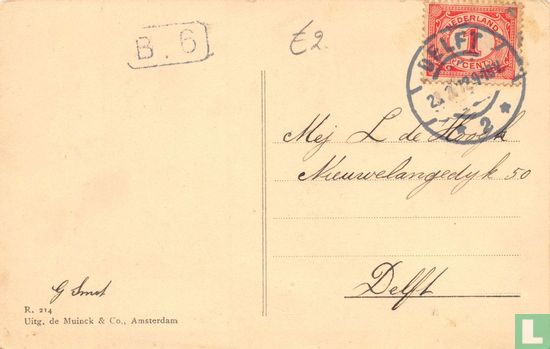 B. 6
£2.
NEDERLAND
1
CENT
DELFT
2
Mej L de Hoogh
Nieuwelangedyk 50
Delft
G Smet
R. 214
Uitg. de Muinck & Co., Amsterdam
catawiki